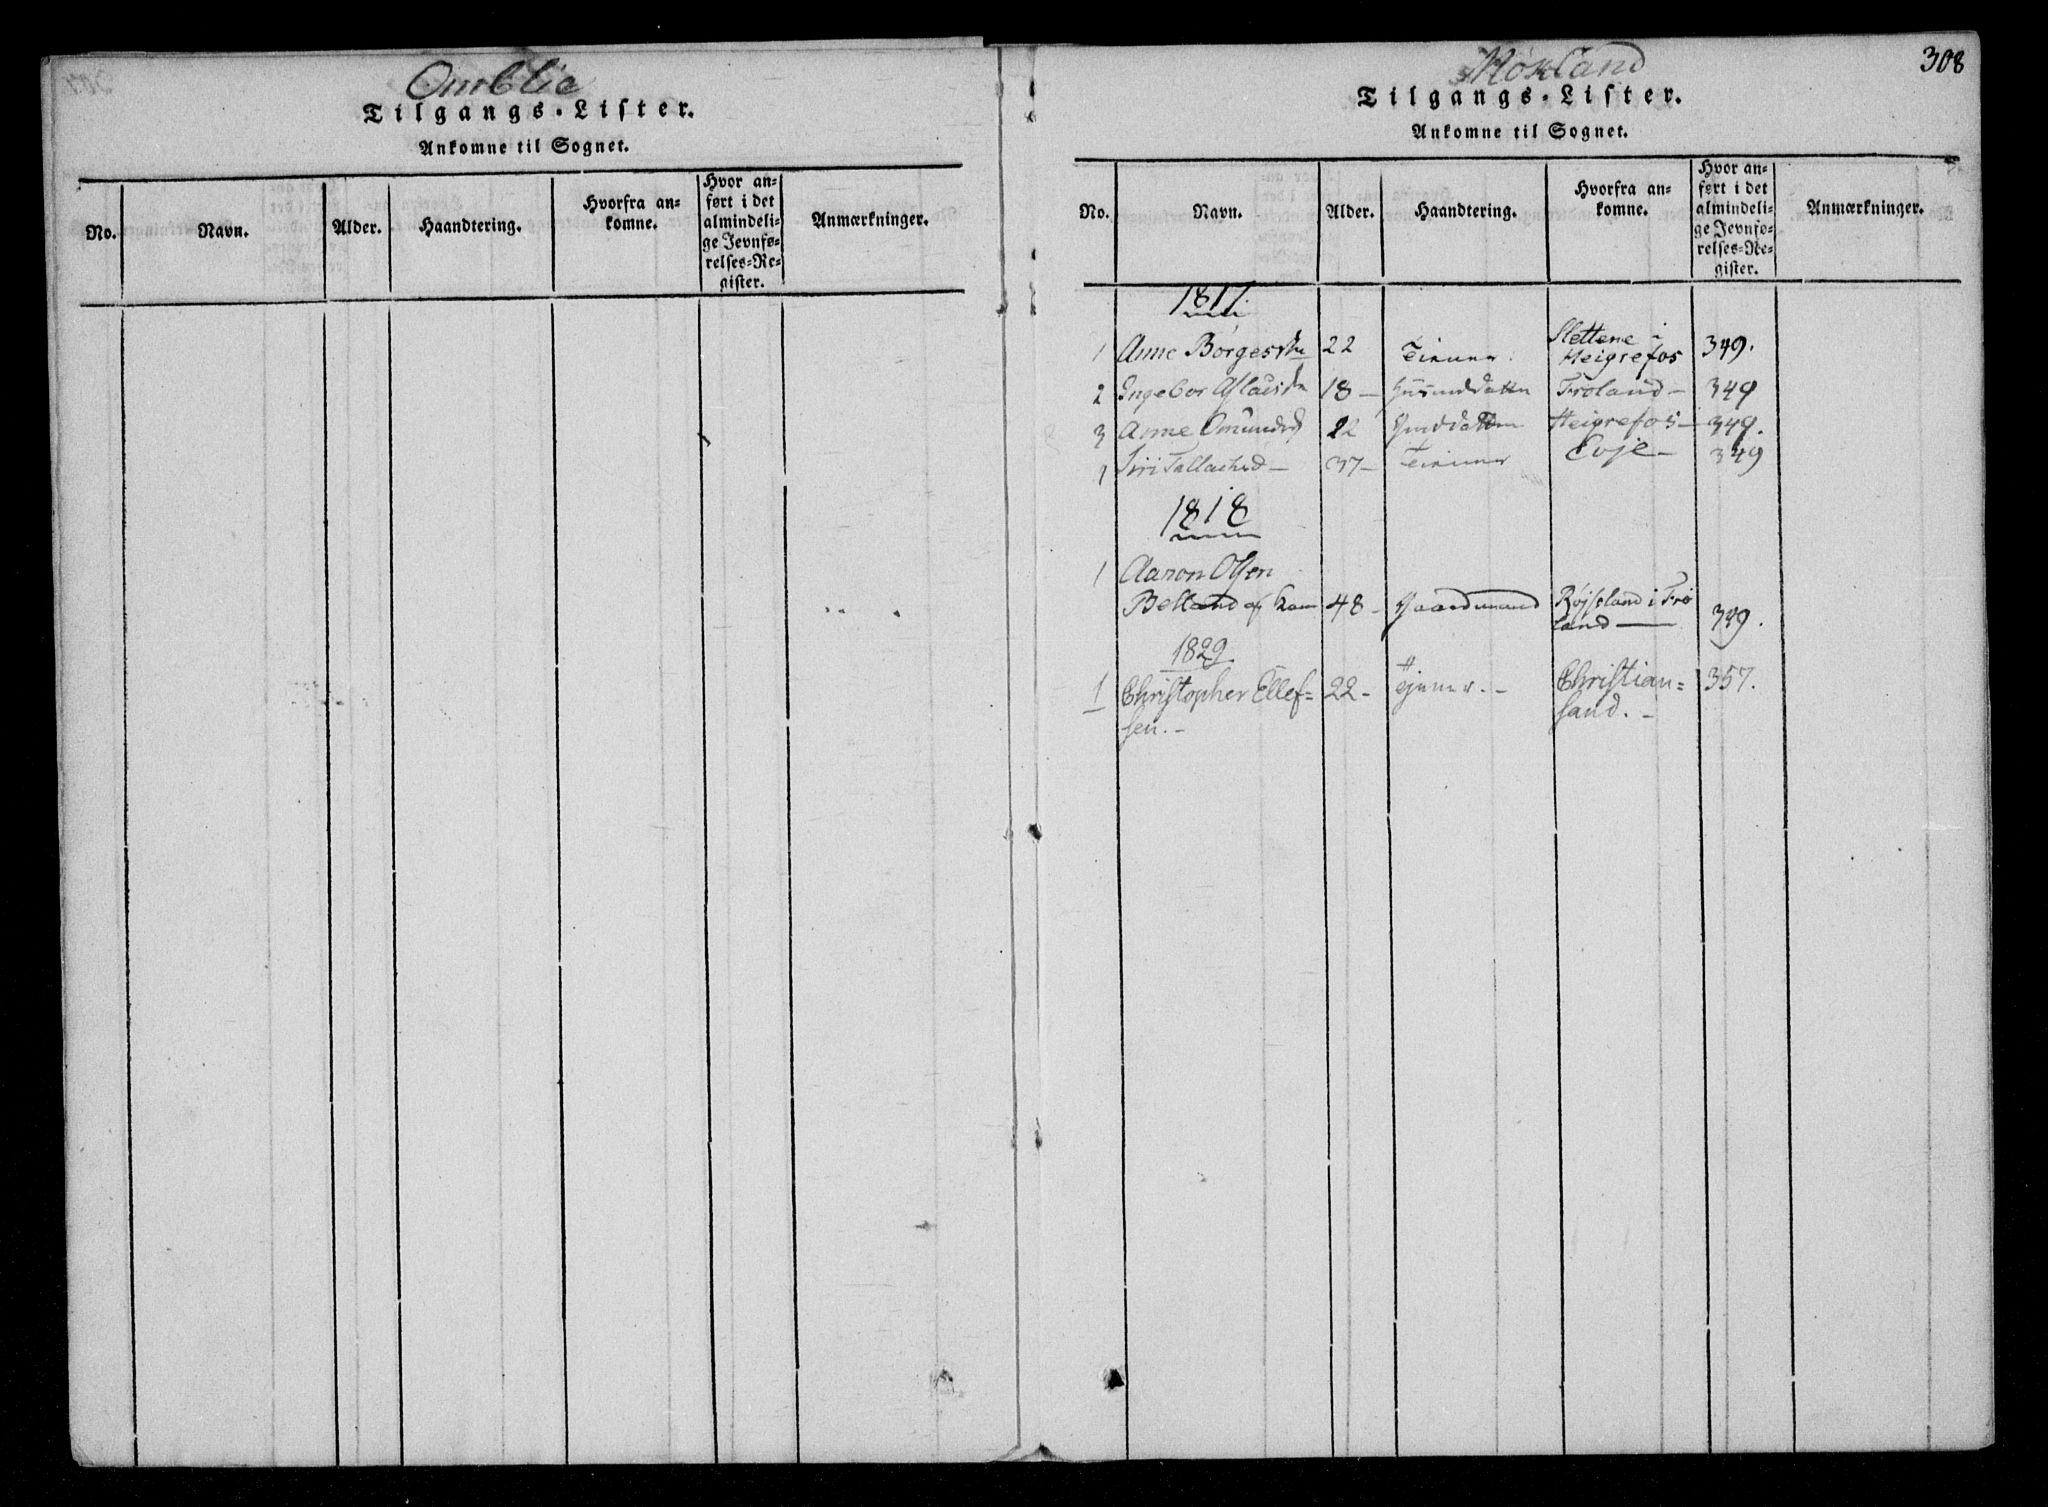 Omblie
Tilgangs-Lister.
Ankomne til Sognet.
No.
Navn.
Alder.
Haandtering.
Hvorfra an-
komne.
Hvor an-
ført i det
almindeli-
ge Jevnfø-
relses-Re-
gister.
Anmærkninger.
308
Møkland
Tilgangs-Lister.
Ankomne til Sognet.
No.
Navn.
Alder.
Haandtering.
Hvorfra an-
komne.
Hvor an-
ført i det
almindeli-
ge Jevnfø-
relses-Re-
gister.
Anmærkninger.
1817.
1 Anne Børges 22 Tienner. Slettene i
Heigrefos 349.
2 Ingebor 18 - Froland - 349
3 Anne Omunds 22 Heigrefos - 349.
1 Siri 37 - Tienner Evje - 349
1818
1 Aaron Olsen
48 - Gaardmand Røjseland i Fro
land - 349.
1829.
1 Christopher Ellef= 22 - Tjener. - Christian= 357.
sen. - sand. -